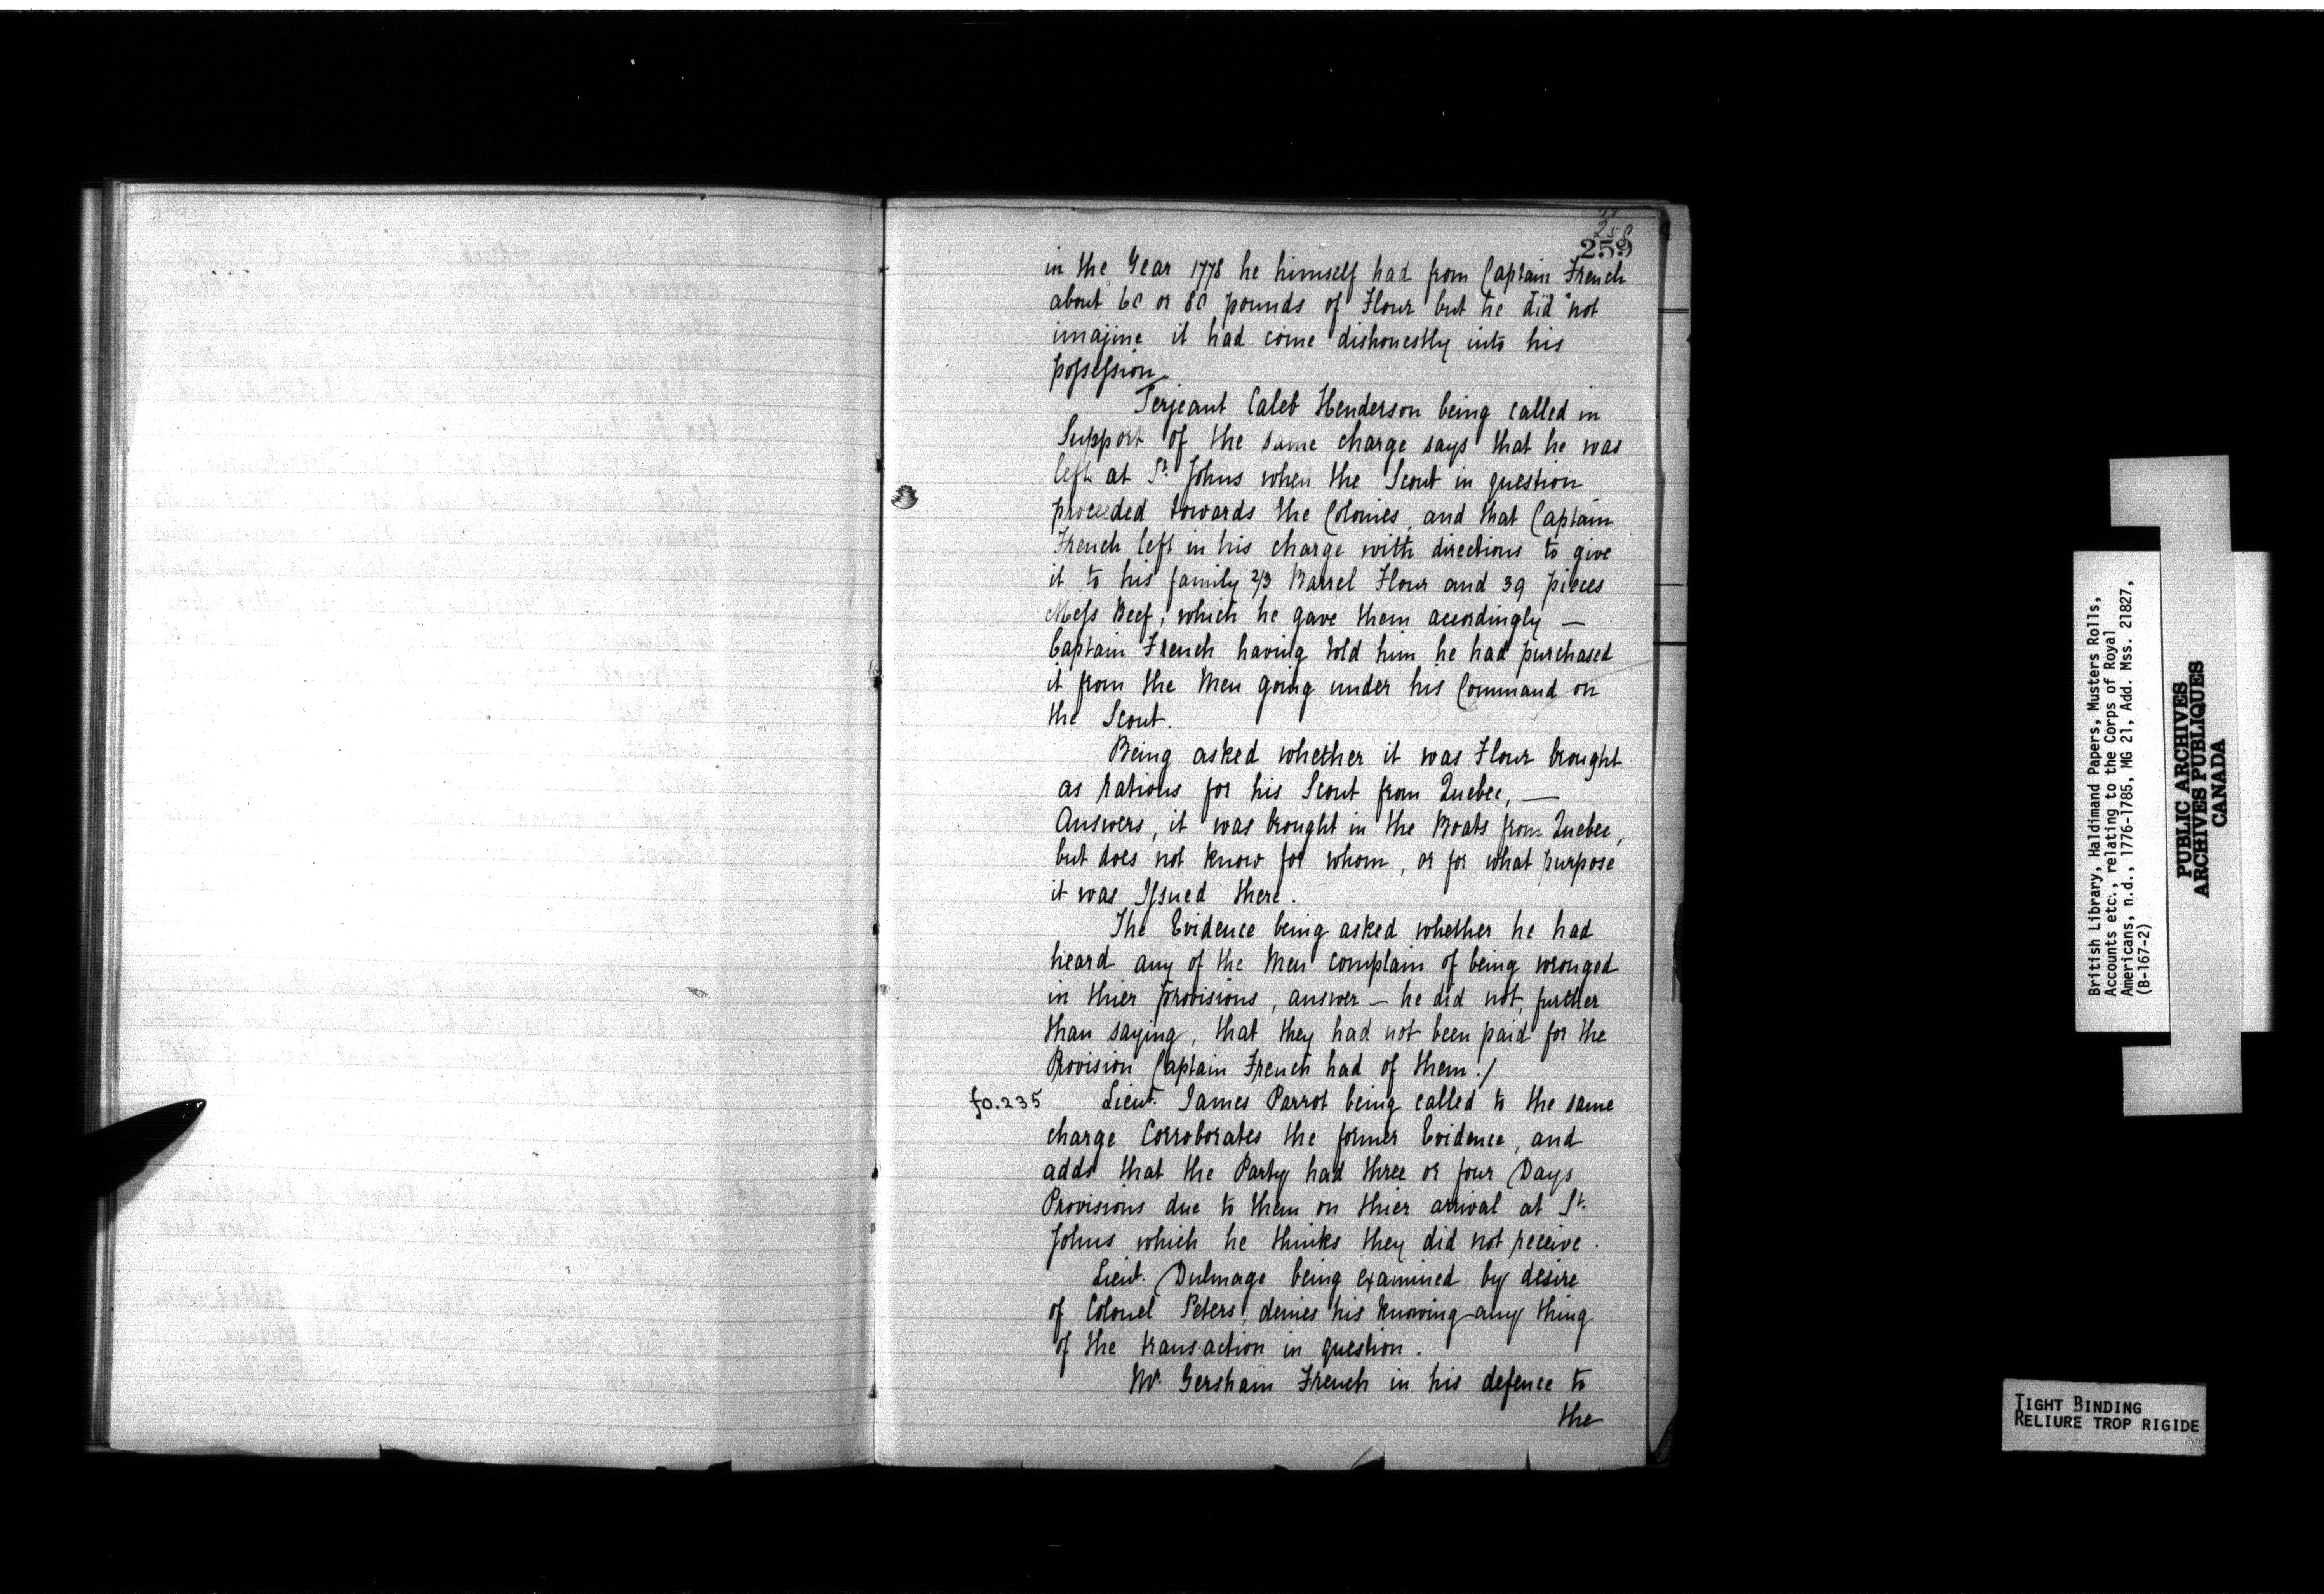 258
259
in the Year 1778 he himself had from Captain French
about 60 or 80 pounds of Flour but he did not
imajine it had come dishonestly into his
possession
Serjeant Caleb Henderson being called in
Support of the same charge says that he was
left at St. Johns when the Scout in question
proceeded towards the Colonies, and that Captain
French left in his charge with directions to give
it to his family 2/3 Barrel Flour and 39 pieces
Mess Beef, which he gave them accordingly —
Captain French having told him he had purchased
it from the Men going under his Command on
the Scout.
Being asked whether it was Flour brought
as rations for his Scout from Quebec, —
Answers, it was brought in the Boats from Quebec,
but does not know for whom, or for what purpose
it was Issued there.
The Evidence being asked whether he had
heard any of the Men complain of being wronged
in thier provisions, answer — he did not, further
than saying, that they had not been paid for the
Provision Captain French had of them./
fo.235 Lieut. James Parrot being called to the same
charge Corroborates the former Evidence, and
adds that the Party had three or four Days
Provisions due to them on thier arrival at St.
Johns which he thinks they did not receive.
Lieut. Dulmage being examined by desire
of Colonel Peters, denies his knowing any thing
of the transaction in question.
Mr. Gersham French in his defence to
the
British Library, Haldimand Papers, Musters Rolls,
Accounts etc., relating to the Corps of Royal
Americans, n.d., 1776-1785, MG 21, Add. Mss. 21827,
(B-167-2)
PUBLIC ARCHIVES
ARCHIVES PUBLIQUES
CANADA
TIGHT BINDING
RELIURE TROP RIGIDE